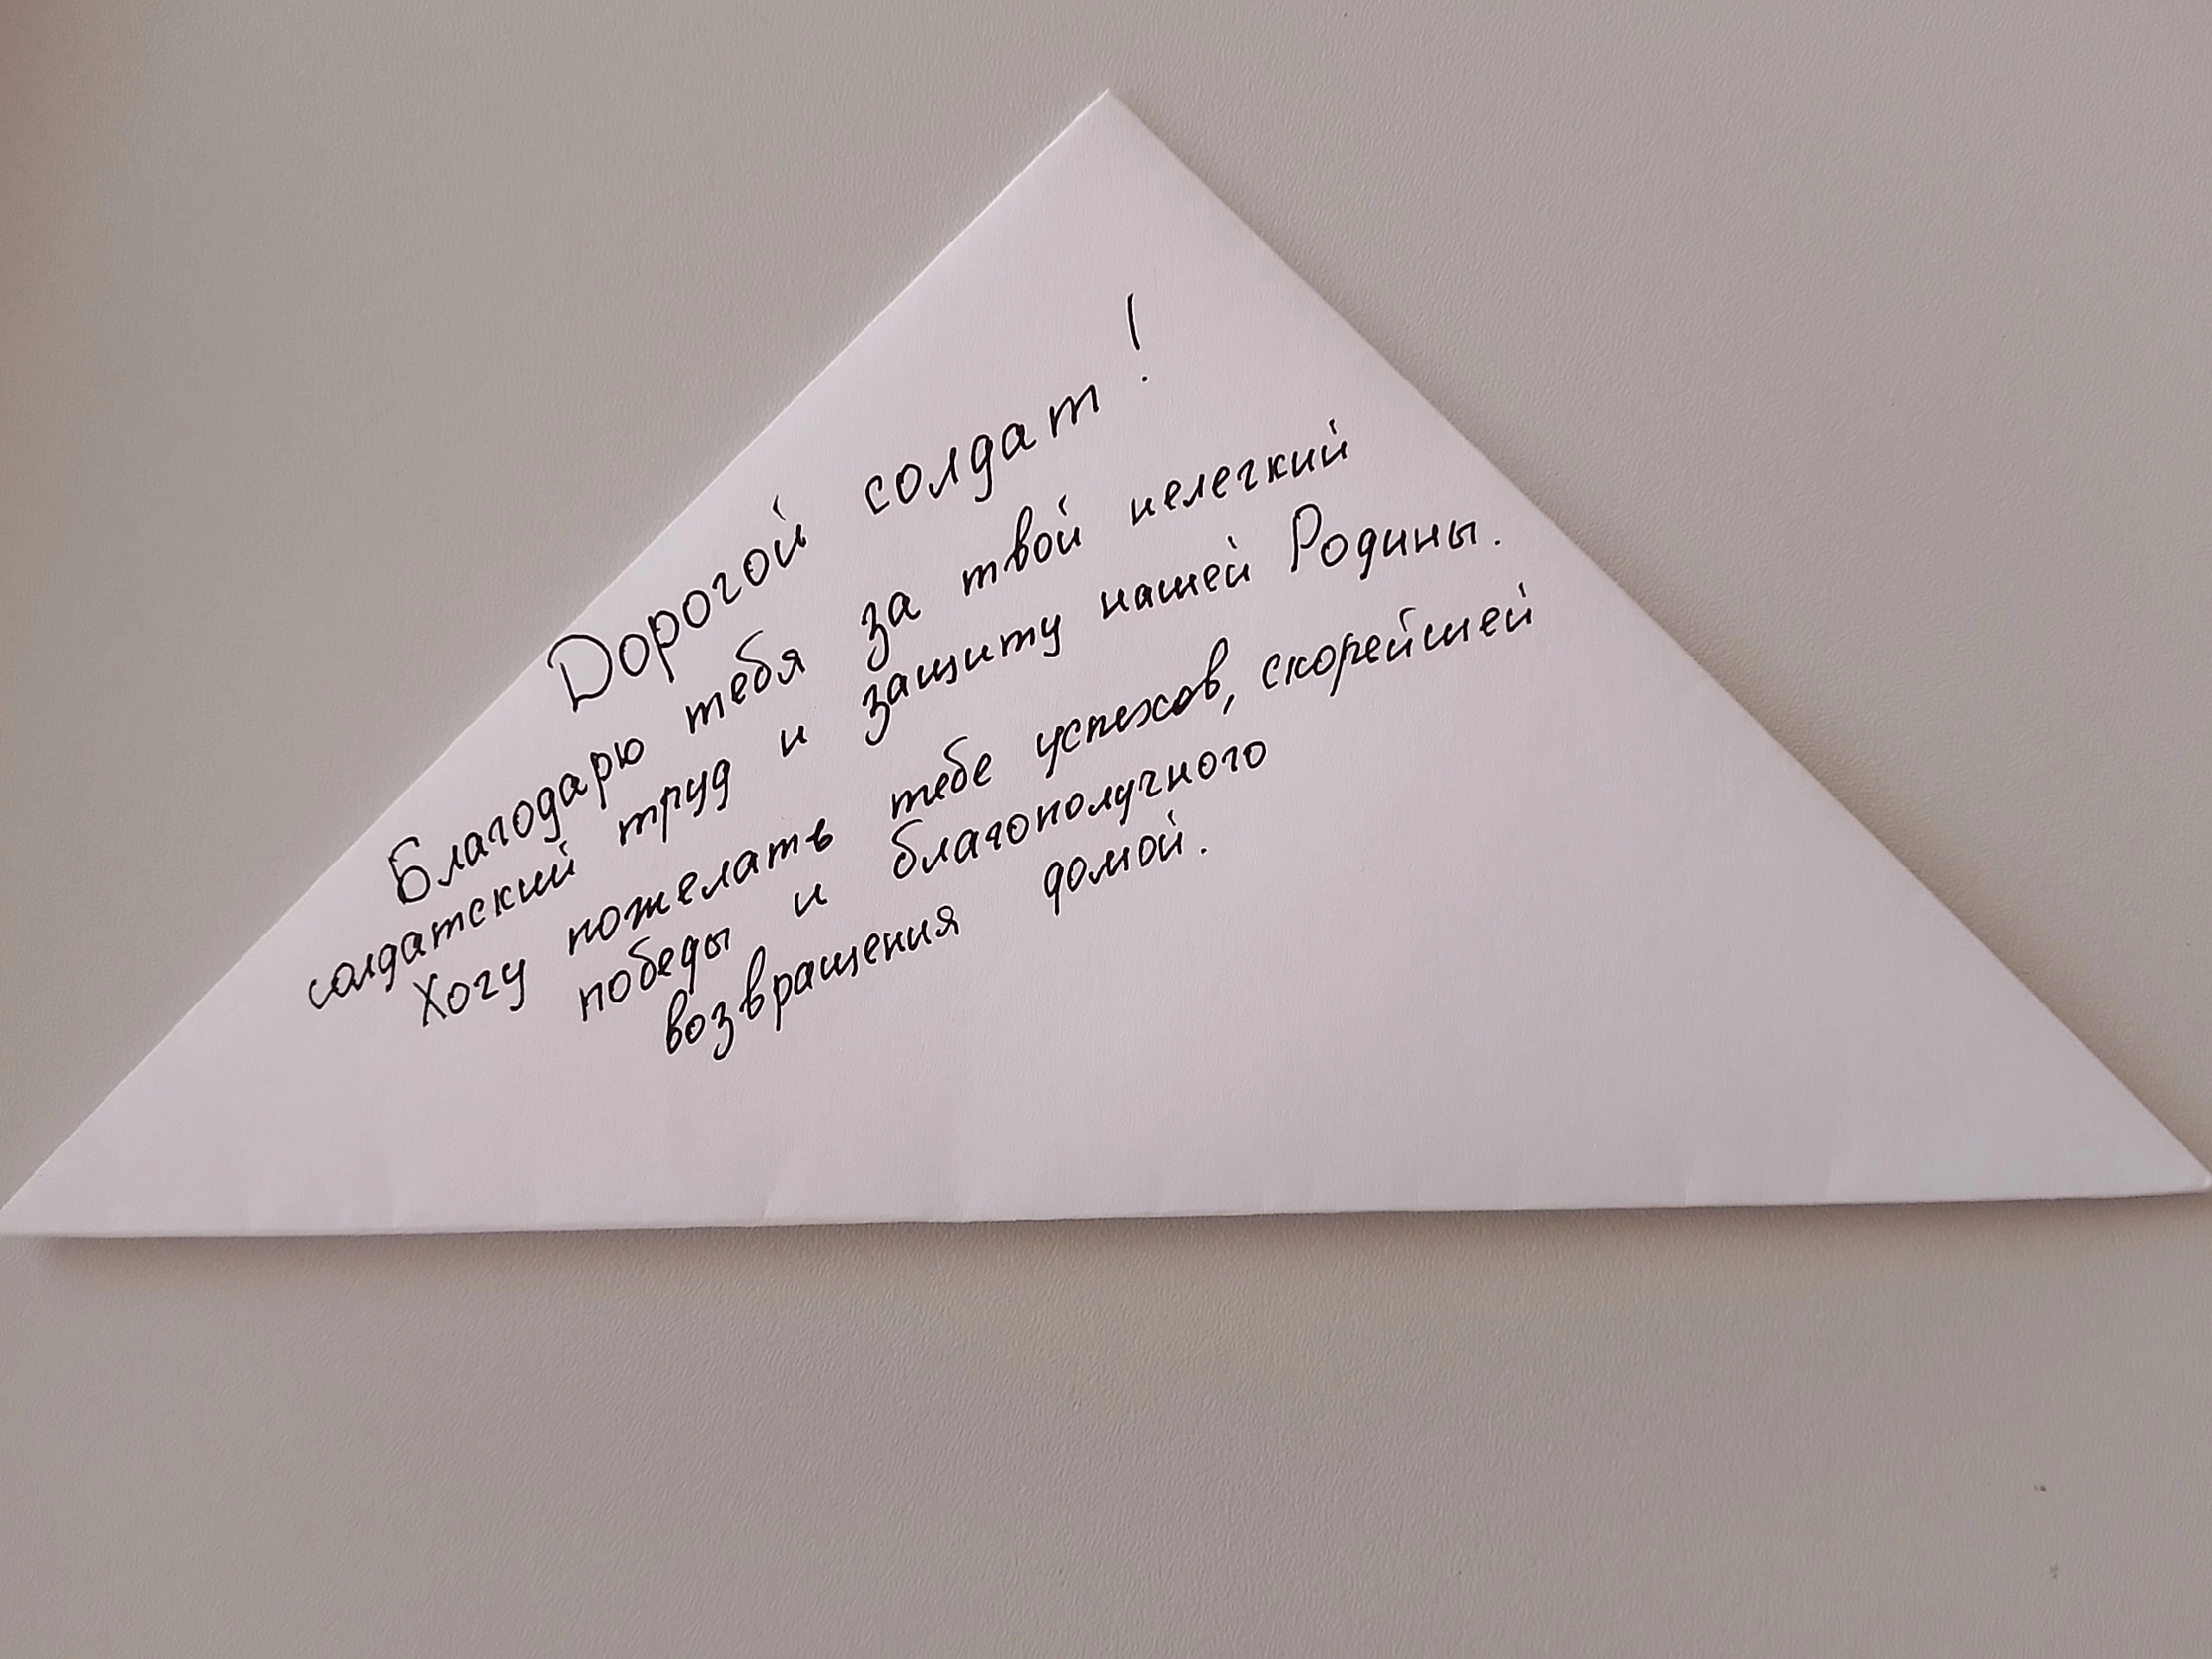 Дорогой солдат!
Благодарю тебя за твой нелегкий
солдатский труд и защиту нашей Родины.
Хочу пожелать тебе успехов, скорейшей
победы и благополучного
возвращения домой.